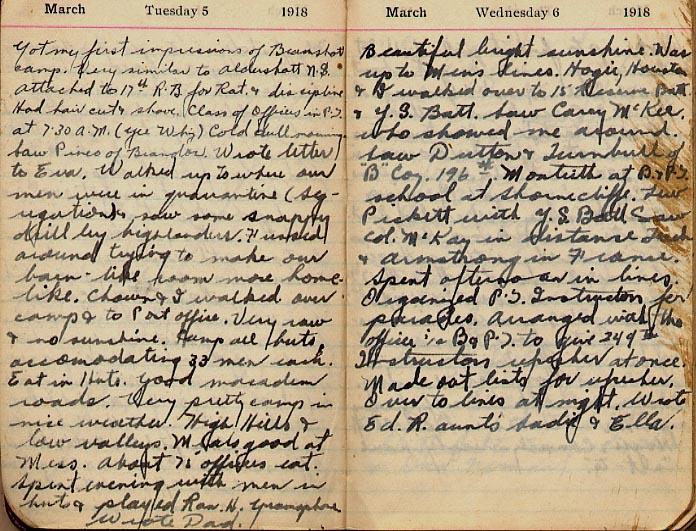 March Tuesday 5 1918
Got my first impressions of Bramshott
camp. Very similar to Aldershott N.S.
Attached to 17th R.B for Rat. & discipline
Had hair cut & shave. Class of Officers in P.T.
at 7:30 A.M. (Gee Whiz) Cold dull morning
Saw Pines of Brandon. Wrote letter
to Eva. Walked up to where our
men were in quarantine (Se-
gregation) & saw some snappy
drill by highlanders. Fussed
around trying to make our
barn-like room more home-
like. Chown & I walked over
camp & to Post office. Very raw
& no sunshine. Camp all huts
accomodating 33 men each.
Eat in Huts. Good macadem
roads. Very pretty camp in
nice weather. High Hills &
low valleys. Meals good at
Mess. About 75 officers eat.
Spent evening with men in
huts & played Ron. H. Gramaphone
Wrote Dad.
March Wednesday 6 1918
Beautiful bright sunshine. Was
up to Men's Lines. Hogie, Houston
& I walked over to 15 Reserve Batt
& Y.S. Batt. Saw Carey McKee.
who showed me around.
Saw Dutton & Turnbull of
"B" Coy. 196th. Monteith at B & P.T.
school at Shorncliffe. Saw
Pickett with Y.S Batt Saw
Col. McKay in distance
& Armstrong in France.
Spent afternoon in lines.
Organized P.T. Instructors for
parades. Arranged with the
officer i/c B & P.T. to give 249th
Instructors upusher at once.
Made out lists for upusher.
Over to lines at night. Wrote
Ed. R. aunts Sadie & Ella.